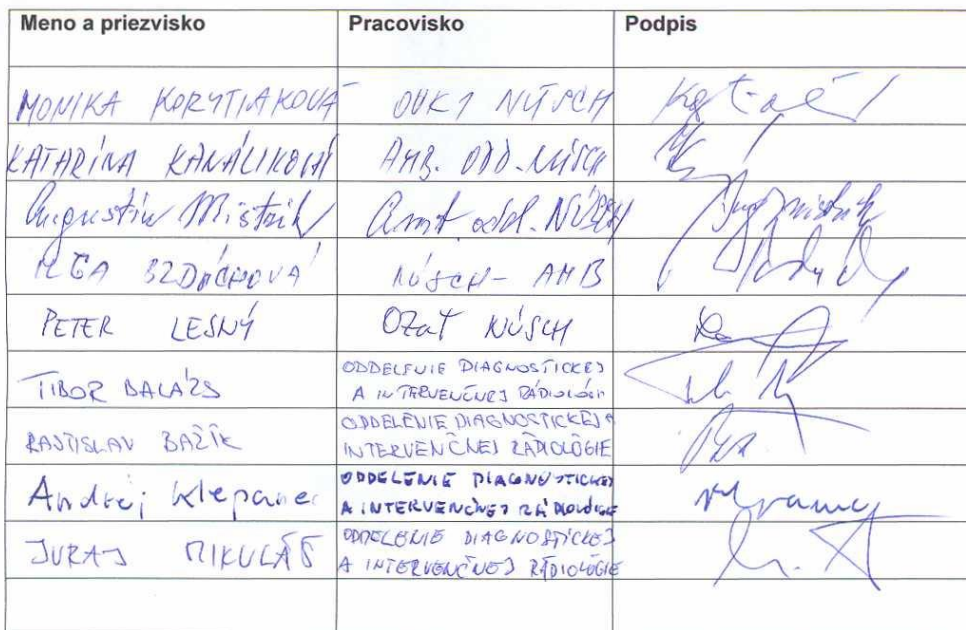 Meno a priezvisko Pracovisko Podpis
MONIKA KORYTIAKOVÁ OVKJ NÚSCH
KATARÍNA KANÁLIKOVÁ AMB. ODD. NÚSCH
Augustín Mištrík Amb odd. NÚSCH
OĽGA BZDÚCHOVÁ NÚSCH - AMB
PETER LESNÝ OZaT NÚSCH
TIBOR BALÁZS ODDELENIE DIAGNOSTICKEJ
A INTERVENČNEJ RÁDIOLÓGIE
RASTISLAV BAŽÍK ODDELENIE DIAGNOSTICKEJ A
INTERVENČNEJ RÁDIOLÓGIE
Andrej Klepanec ODDELENIE DIAGNOSTICKEJ
A INTERVENČNEJ RÁDIOLÓGIE
JURAJ MIKULÁŠ ODDELENIE DIAGNOSTICKEJ
A INTERVENČNEJ RÁDIOLÓGIE